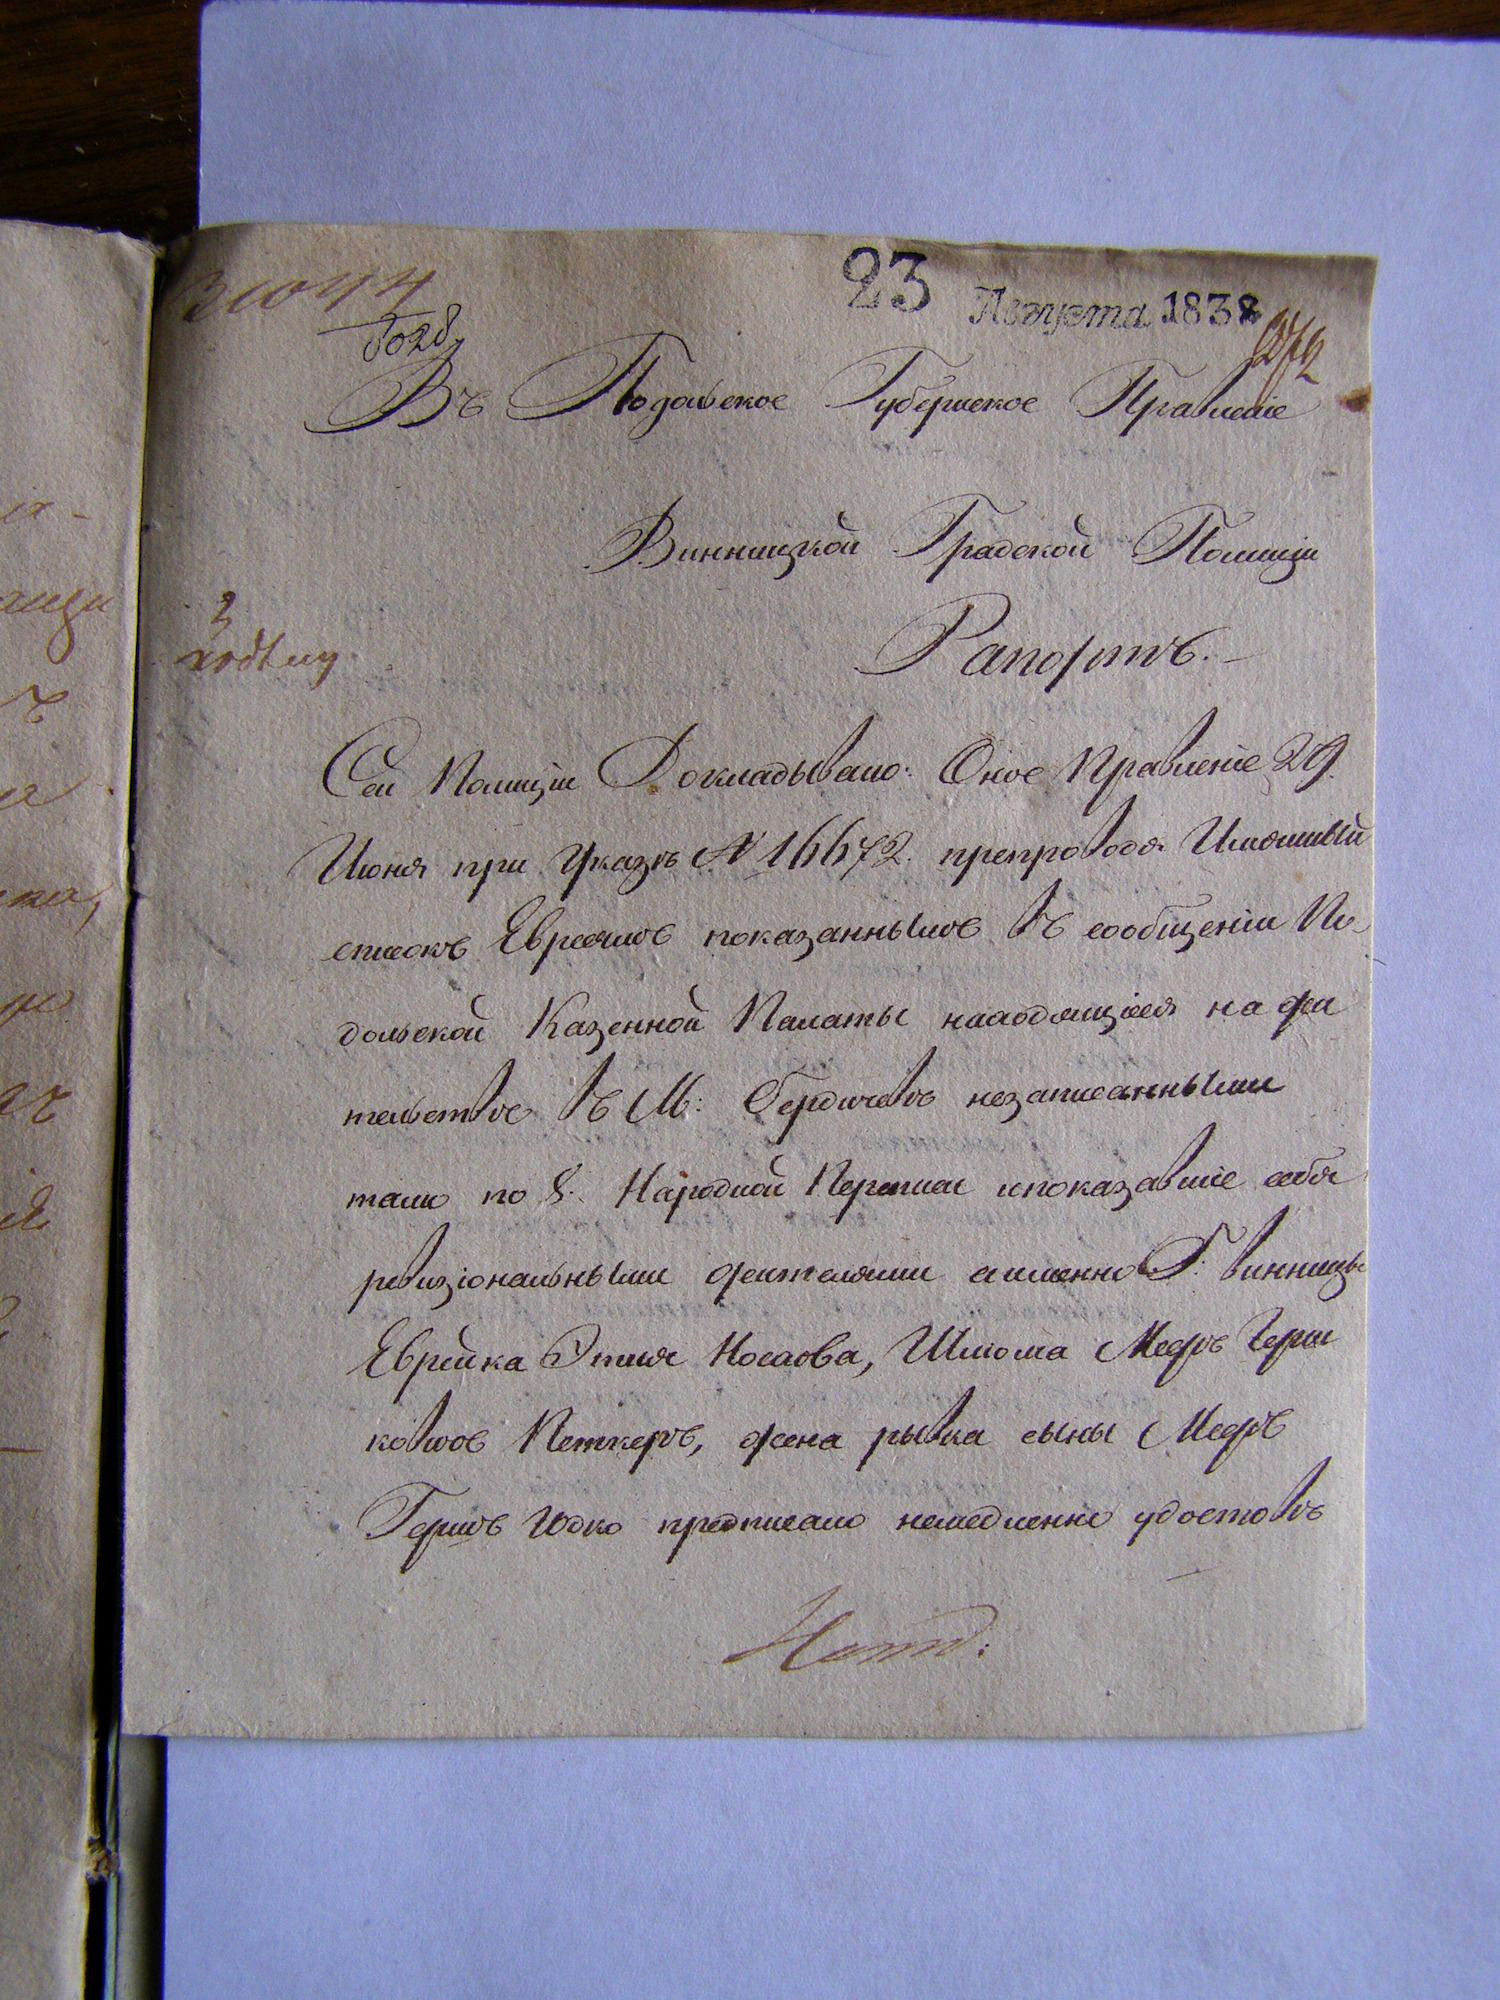 23 Августа 1838
5028
Въ Подольское Губернское Правленіе
Винницкой Градской Полиціи
Рапортъ.
Сей Полиціи Докладывано: Оное Правленіе 29.
Июня при Указѣ № 16672. препроводя Имянный
списокъ Евреямъ показаннымъ въ сообщеніи По-
дольской Казенной Палаты находящіеся на жи
тельствѣ въ М: Бердичевѣ незаписанными
тамо по 8. Народной Переписи ипоказавшіе себя
ревизіональными жителями аименно Г: Винницы
Еврейка Этля Носаова, Шлюма Мееръ Герш
ковъ Петкеръ, жена рывка сыны Мееръ
Гершъ Юдко предписало немедленно удостовѣ